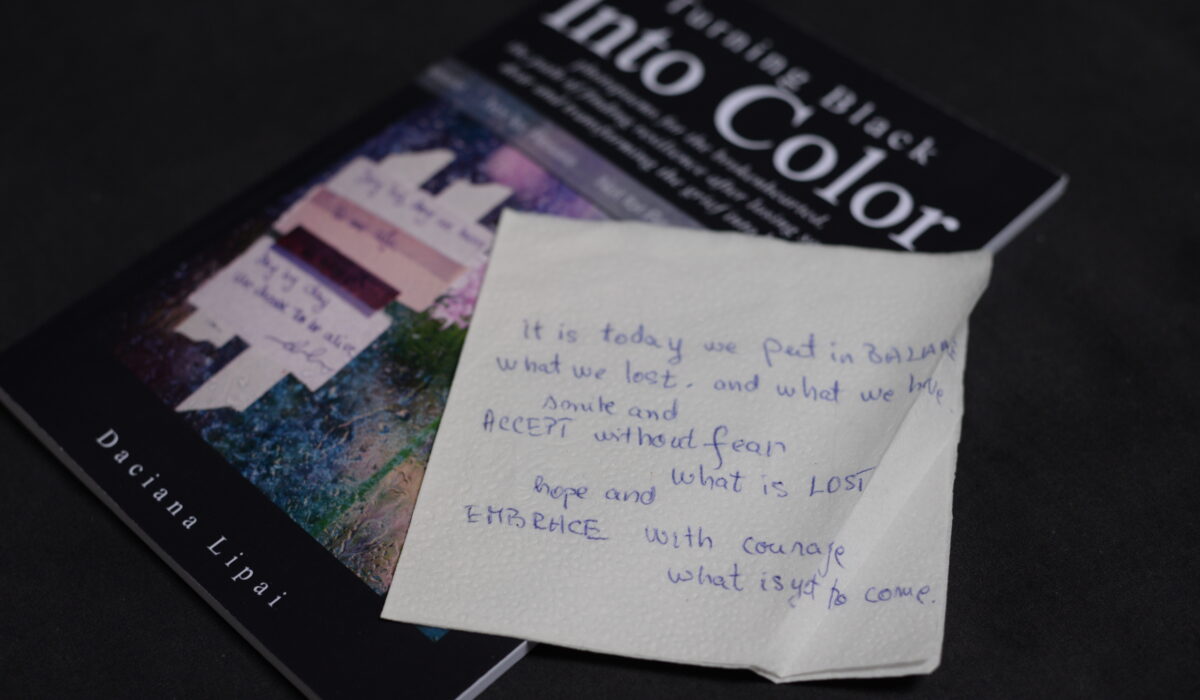 Turning Black
Into Color
for the brokenhearted,
of finding resilience after losing
and transforming the grief into
Day by day
we choose to be alive
Daciana Lipai
It is today we put in BALANCE
what we lost. and what we have.
smile and
ACCEPT without fear
what is LOST
hope and
EMBRACE with courage
what is yet to come.